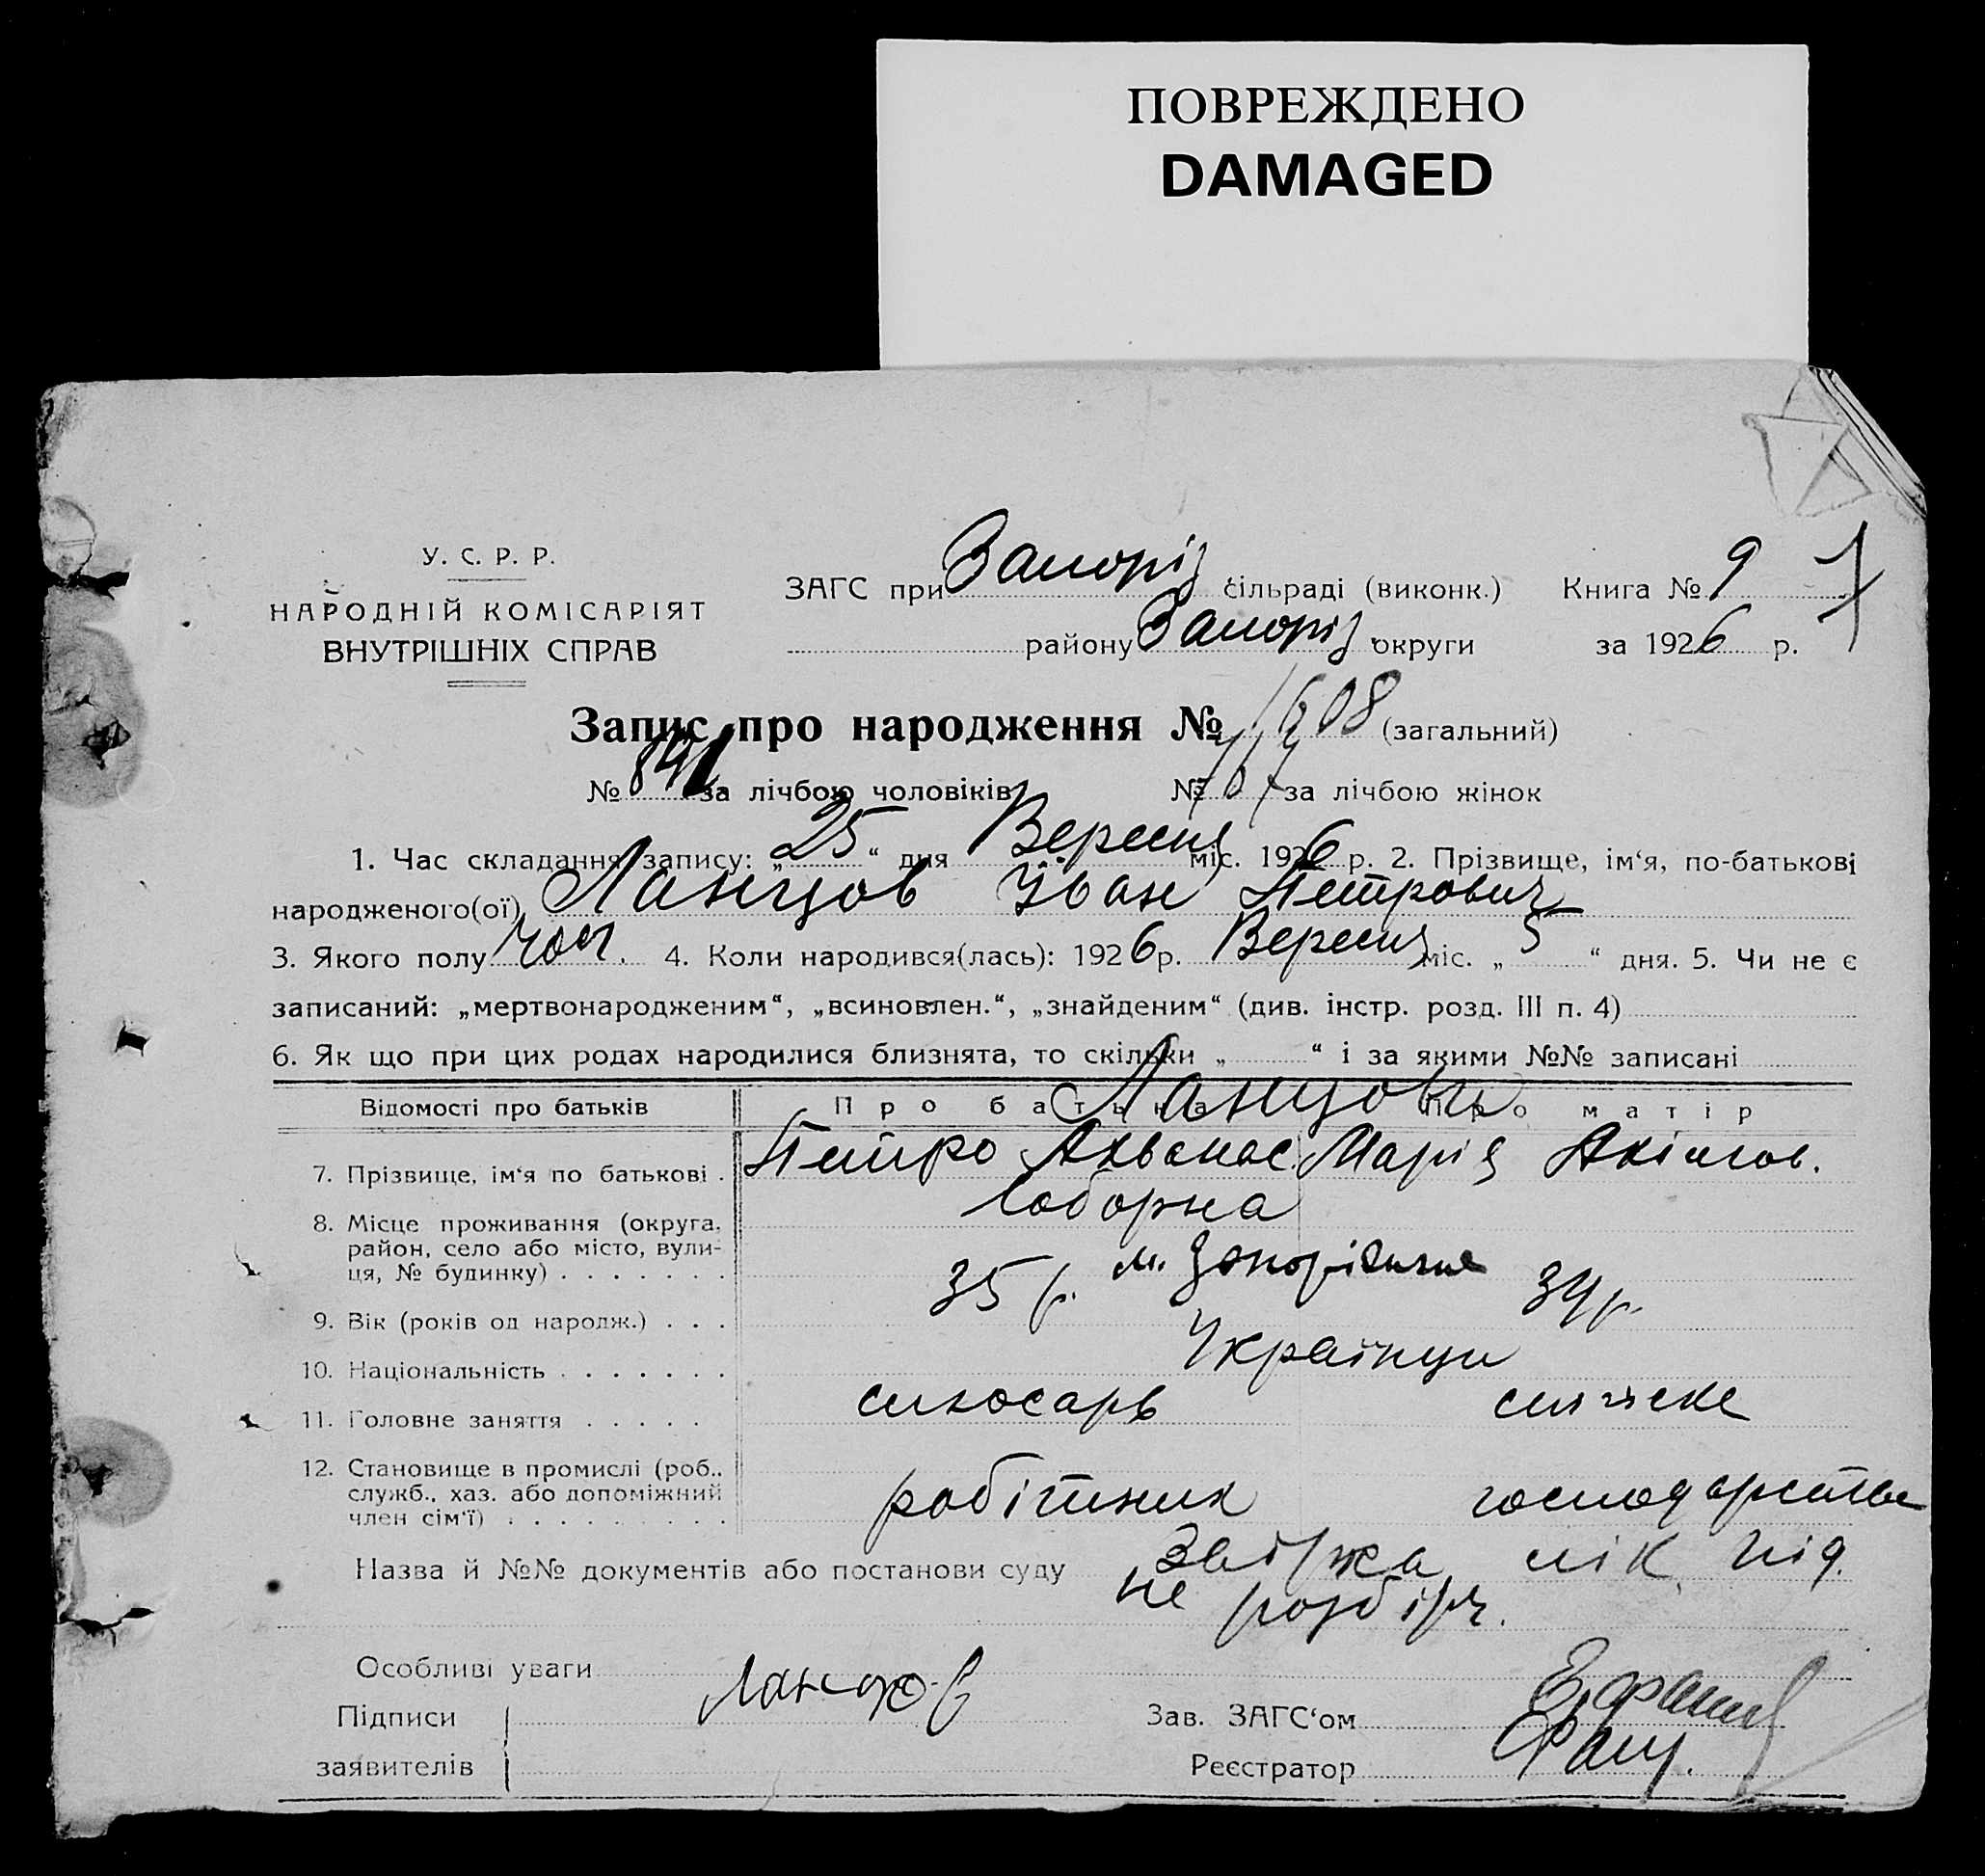 ПОВРЕЖДЕНО
DAMAGED
У. С. Р. Р.
НАРОДНІЙ КОМІСАРІЯТ
ВНУТРІШНІХ СПРАВ
ЗАГС при Запоріз сільраді (виконк.) Книга № 9
району Запоріз. округи за 1926 р.
Запис про народження № 1608 (загальний)
№ за лічбою чоловіків № за лічбою жінок
1. Час складання запису: „25“ дня Вересня міс. 1926 р. 2. Прізвище, ім‘я, по-батькові
народженого(ої) Ланцов Іван Петрович
3. Якого полу чол. 4. Коли народився(лась): 1926 р. Вересня міс. „5“ дня. 5. Чи не є
записаний: „мертвонародженим“, „всиновлен.“, „знайденим“ (див. інстр. розд. III п. 4)
6. Як що при цих родах народилися близнята, то скільки „ “ і за якими №№ записані
Ланцови
Відомості про батьків Про батька Про матір
7. Прізвище, ім‘я по батькові . Петро Ахванас. Марія Акімов.
8. Місце проживання (округа, Соборна
район, село або місто, вули-
ця, № будинку) . . . . . . . м. Запоріжжя
9. Вік (років од народж.) . . . 35 р. 34 р.
10. Національність . . . . . . . Українци
11. Головне заняття . . . . . слюсарь
12. Становище в промислі (роб.,
служб., хаз. або допоміжний робітник господарства
член сім‘ї) . . . . . . . . .
Назва й №№ документів або постанови суду лік. під.
не розбірч.
Особливі уваги
Підписи Ланцов Зав. ЗАГС‘ом
заявителів Реєстратор